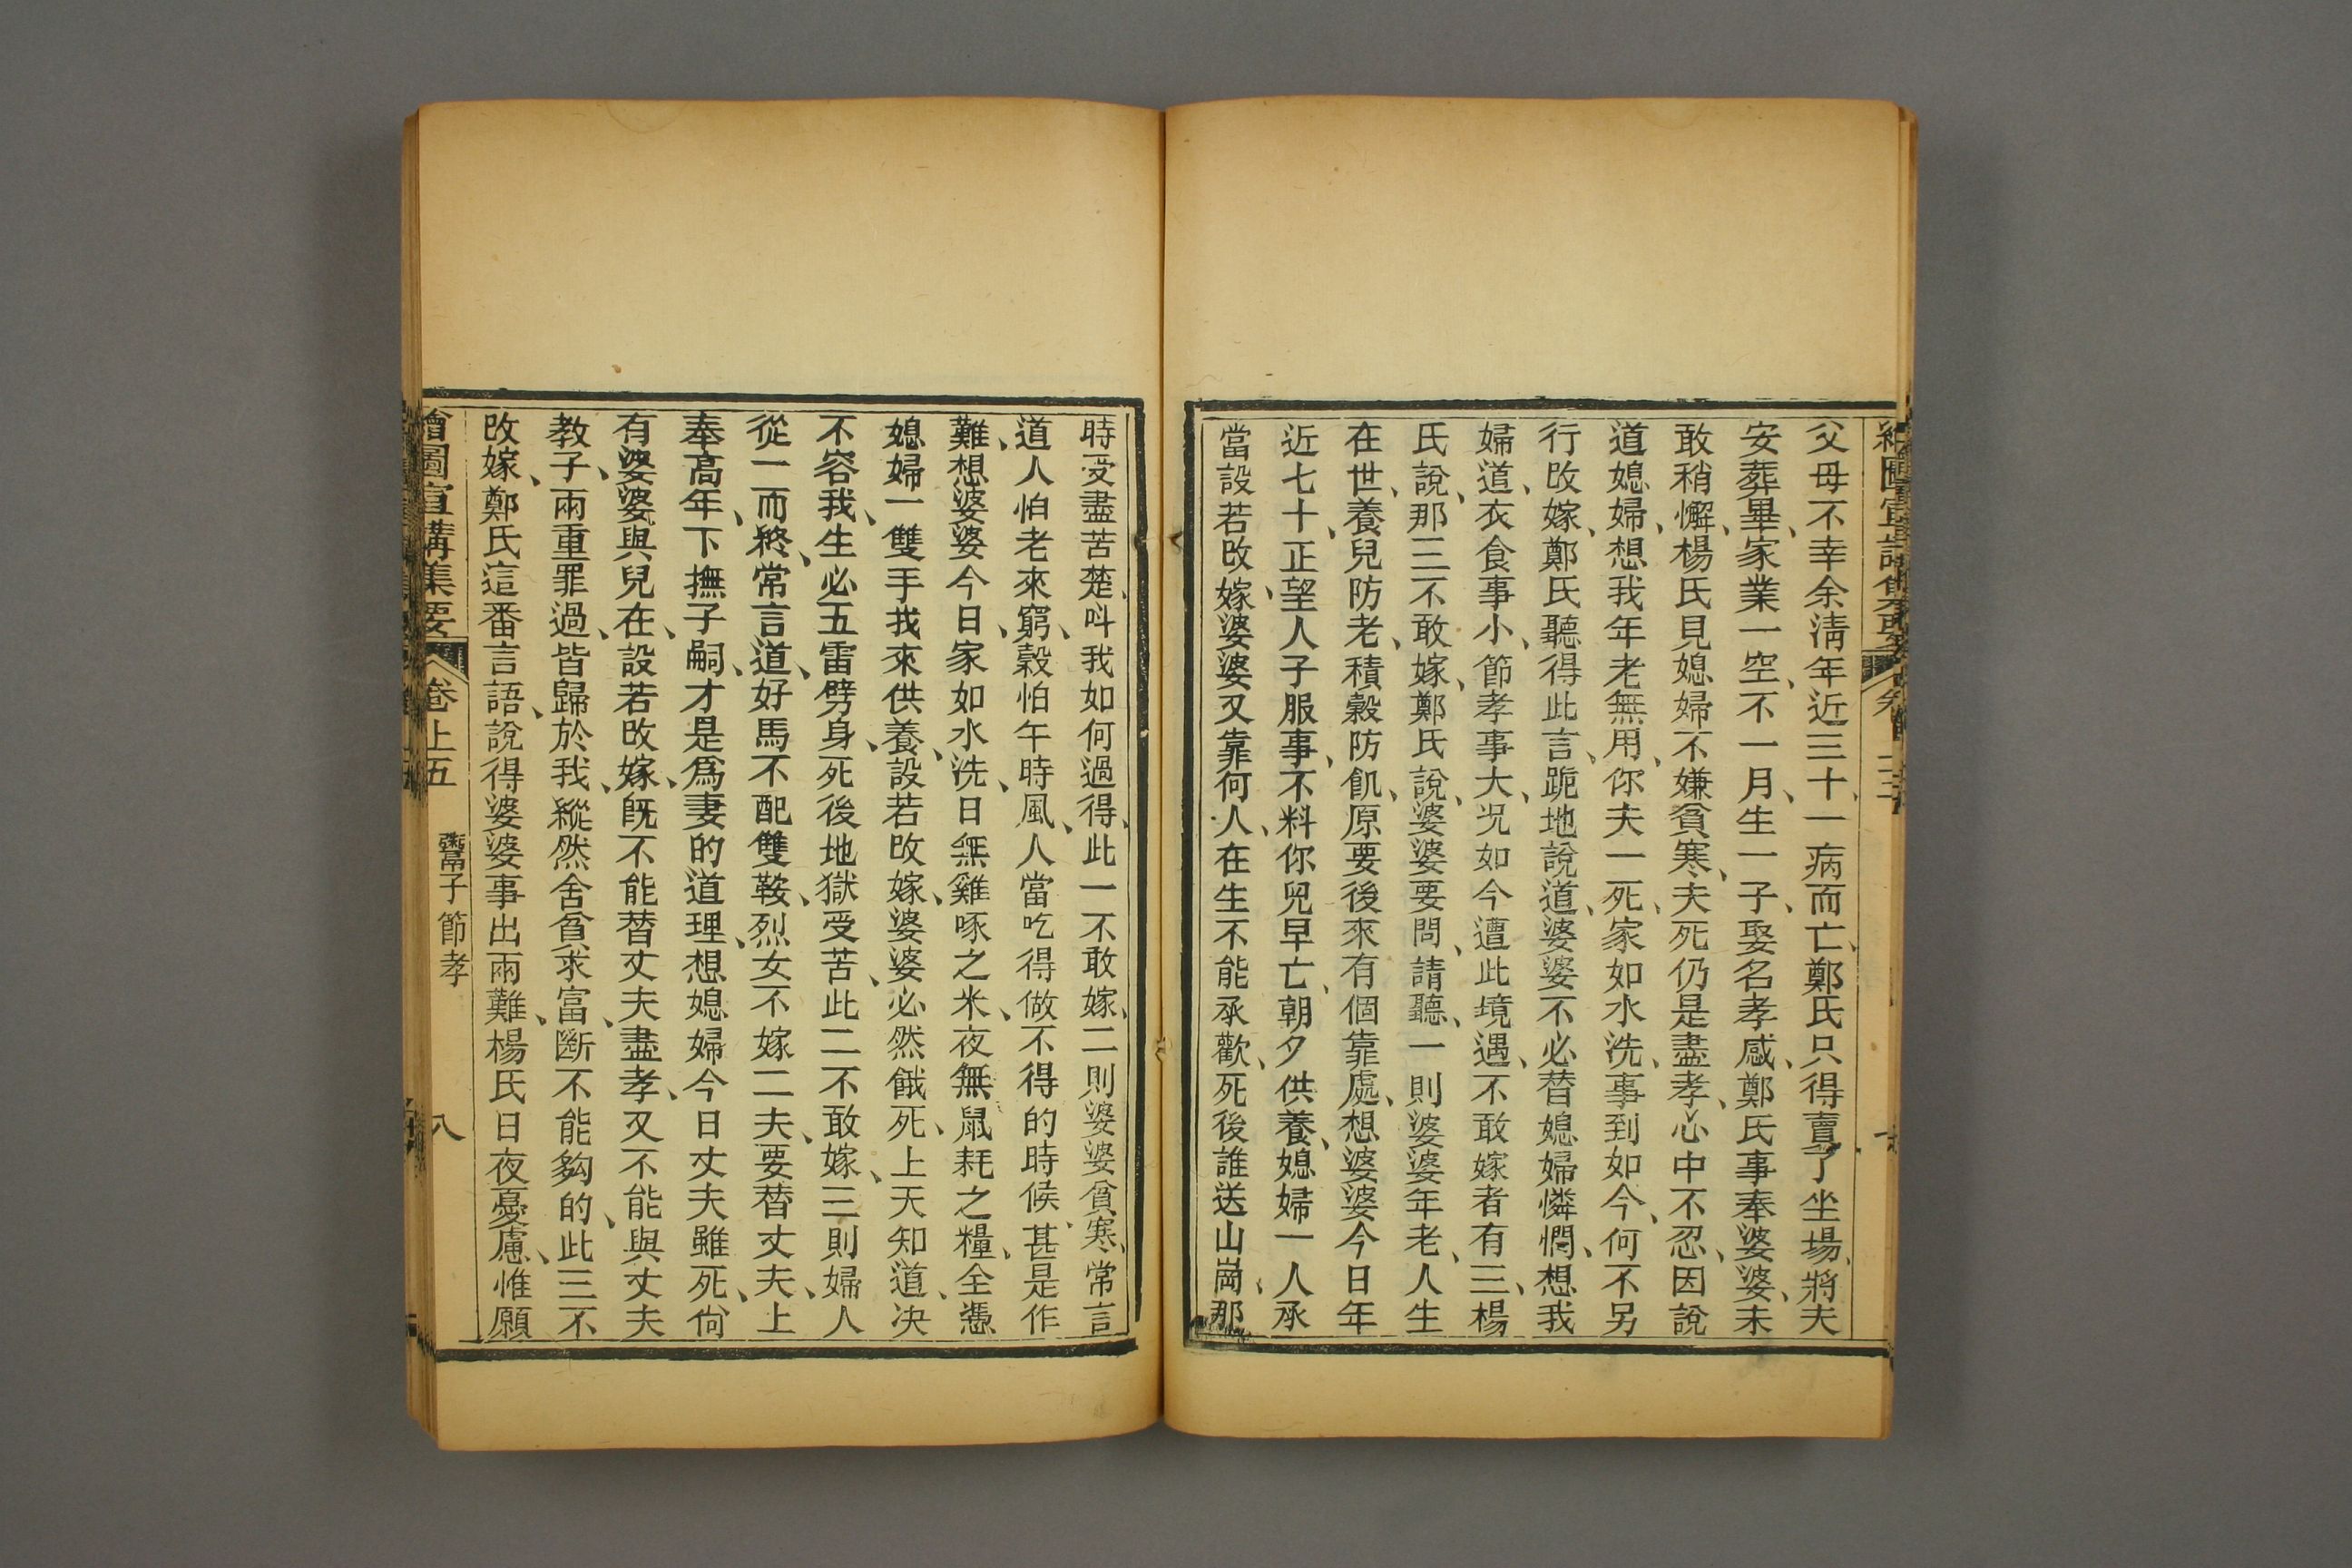 父母不幸余淸年近三十一病而亡、鄭氏只得賣了坐場、將夫
安葬畢、家業一空、不一月、生一子、娶名孝感、鄭氏事奉婆婆、未
敢稍懈、楊氏見媳婦不嫌貧寒、夫死仍是盡孝、心中不忍、因說
道媳婦、想我年老無用、你夫一死、家如水洗、事到如今、何不另
行改嫁、鄭氏聽得此言、跪地說道、婆婆不必替媳婦憐憫、想我
婦道、衣食事小、節孝事大、况如今遭此境遇、不敢嫁者有三、楊
氏說、那三不敢嫁、鄭氏說、婆婆要問、請聽、一則婆婆年老、人生
在世、養兒防老、積穀防飢、原要後來有個靠處、想婆婆今日年
近七十、正望人子服事、不料你兒早亡、朝夕供養、媳婦一人承
當設若改嫁、婆婆又靠何人、在生不能承歡、死後誰送山崗、那
時受盡苦楚、呌我如何過得、此一不敢嫁、二則婆婆貧寒、常言
道人怕老來窮、穀怕午時風、人當吃得做不得的時候、甚是作
難、想婆婆今日、家如水洗、日無雞啄之米、夜無鼠耗之糧、全憑
媳婦一雙手我來供養、設若改嫁、婆婆必然餓死、上天知道、决
不容我、生必五雷劈身、死後地獄受苦、此二不敢嫁、三則婦人
從一而終、常言道、好馬不配雙鞍、烈女不嫁二夫、要替丈夫、上
奉高年、下撫子嗣、才是爲妻的道理、想媳婦今日丈夫雖死、尙
有婆婆與兒在、設若改嫁、旣不能替丈夫盡孝、又不能與丈夫
教子、兩重罪過、皆歸於我、縱然舍貧求富、斷不能夠的、此三不
改嫁、鄭氏這番言語、說得婆婆事出兩難、楊氏日夜憂慮、惟願
繪圖宣講集要 卷上五 鬻子節孝 八